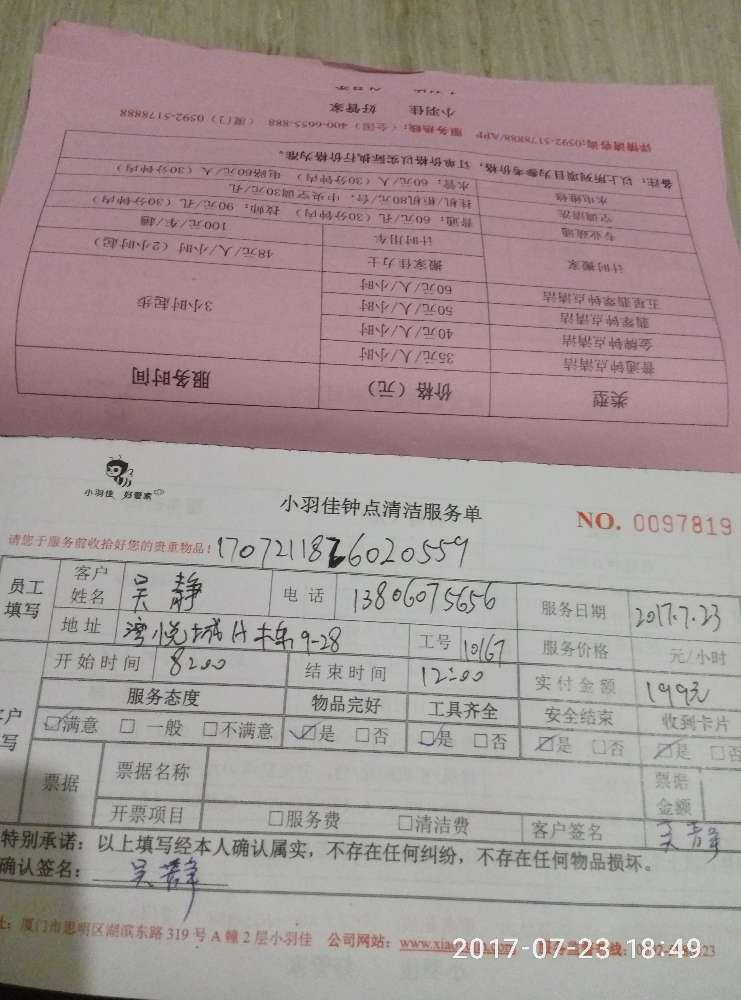 小羽佳 好管家
详情请咨询:0592-5178888/APP 服务热线:(全国)400-6655-888 (厦门)0592-5178888
备注:以上所列项目为参考价格,订单价格以实际执行价格为准。
水电维修 水管:60元/人(30分钟内) 电路60元/人(30分钟内)
空调清洗 挂机/柜机80元/台,中央空调30元/孔
专业疏通 普通:60元/孔(30分钟内) 技师:90元/孔(30分钟内)
计时搬家 计时用车 100元/车/趟
搬家佳力士 48元/人/小时(2小时起)
五星翡翠钟点清洁 60元/人/小时
翡翠钟点清洁 50元/人/小时 3小时起步
金牌钟点清洁 40元/人/小时
普通钟点清洁 35元/人/小时
类型 价格(元) 服务时间
小羽佳 好管家
小羽佳钟点清洁服务单
NO. 0097819
请您于服务前收拾好您的贵重物品!
员工填写 客户姓名 吴静 电话 13806075656 服务日期 2017.7.23
地址 工号 10167 服务价格 元/小时
开始时间 8:00 结束时间 12:00 实付金额 199元
服务态度 物品完好 工具齐全 安全结束 收到卡片
☑满意 □一般 □不满意 ☑是 □否 ☑是 □否 ☑是 □否 ☑是 □否
票据 票据名称 票据金额
开票项目 □服务费 □清洁费 客户签名 吴静
特别承诺:以上填写经本人确认属实,不存在任何纠纷,不存在任何物品损坏。
确认签名: 吴静
厦门市思明区湖滨东路319号A幢2层小羽佳 公司网站:
2017-07-23 18:49